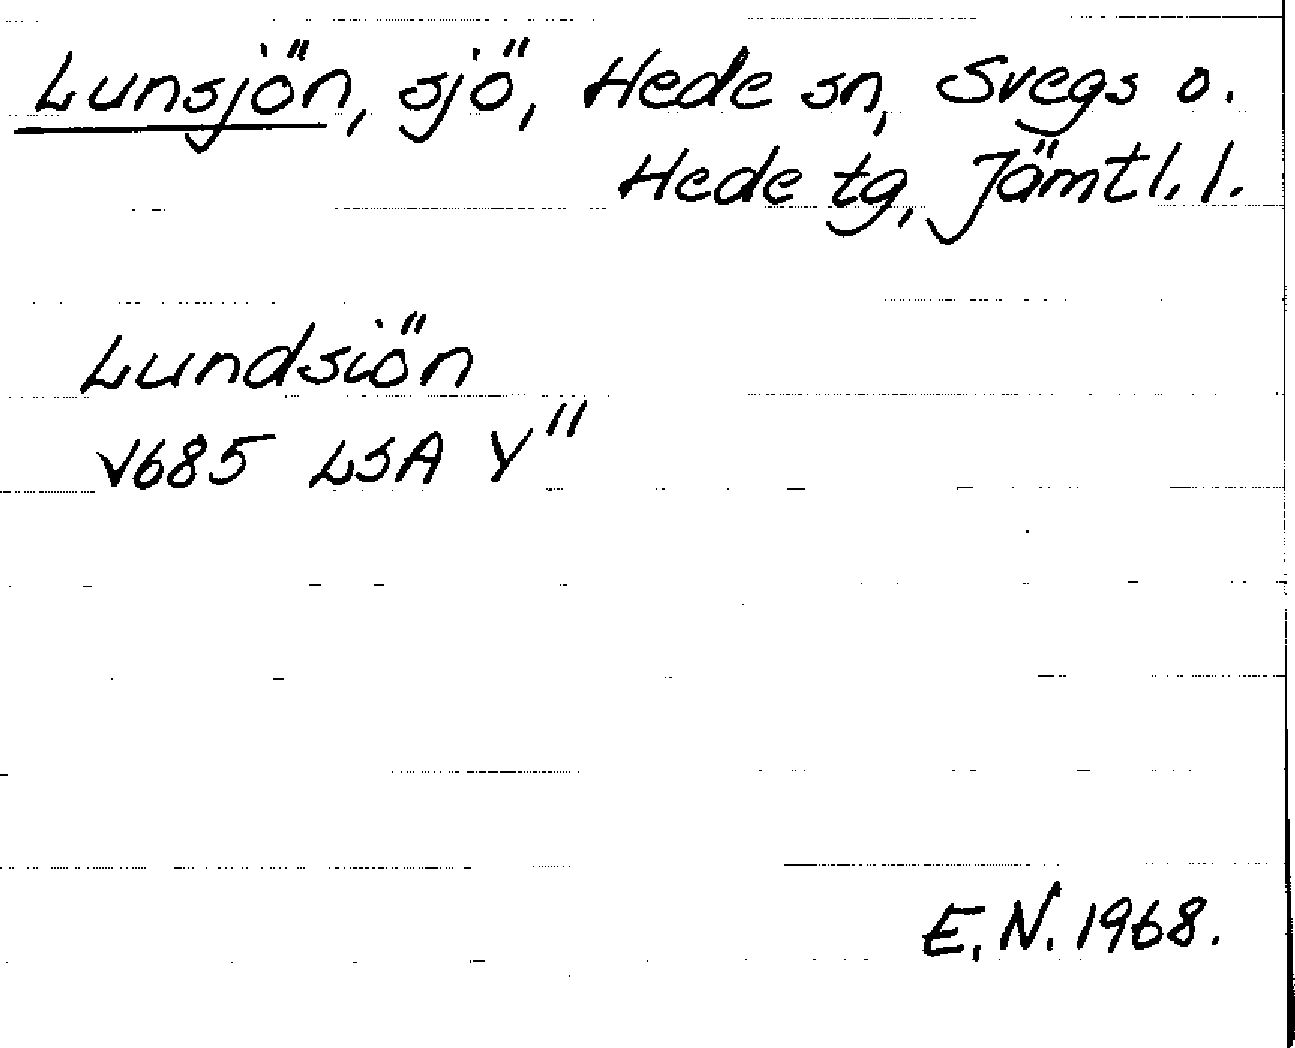 Lunsjön, sjö, Hede sn, Svegs o.
Hede tg, Jämtl. l.
Lundsiön
√685 LSA Y"
E.N. 1968.